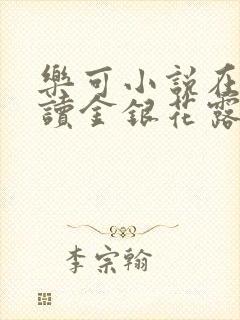 樂可小說在
讀金銀花露
李宗翰